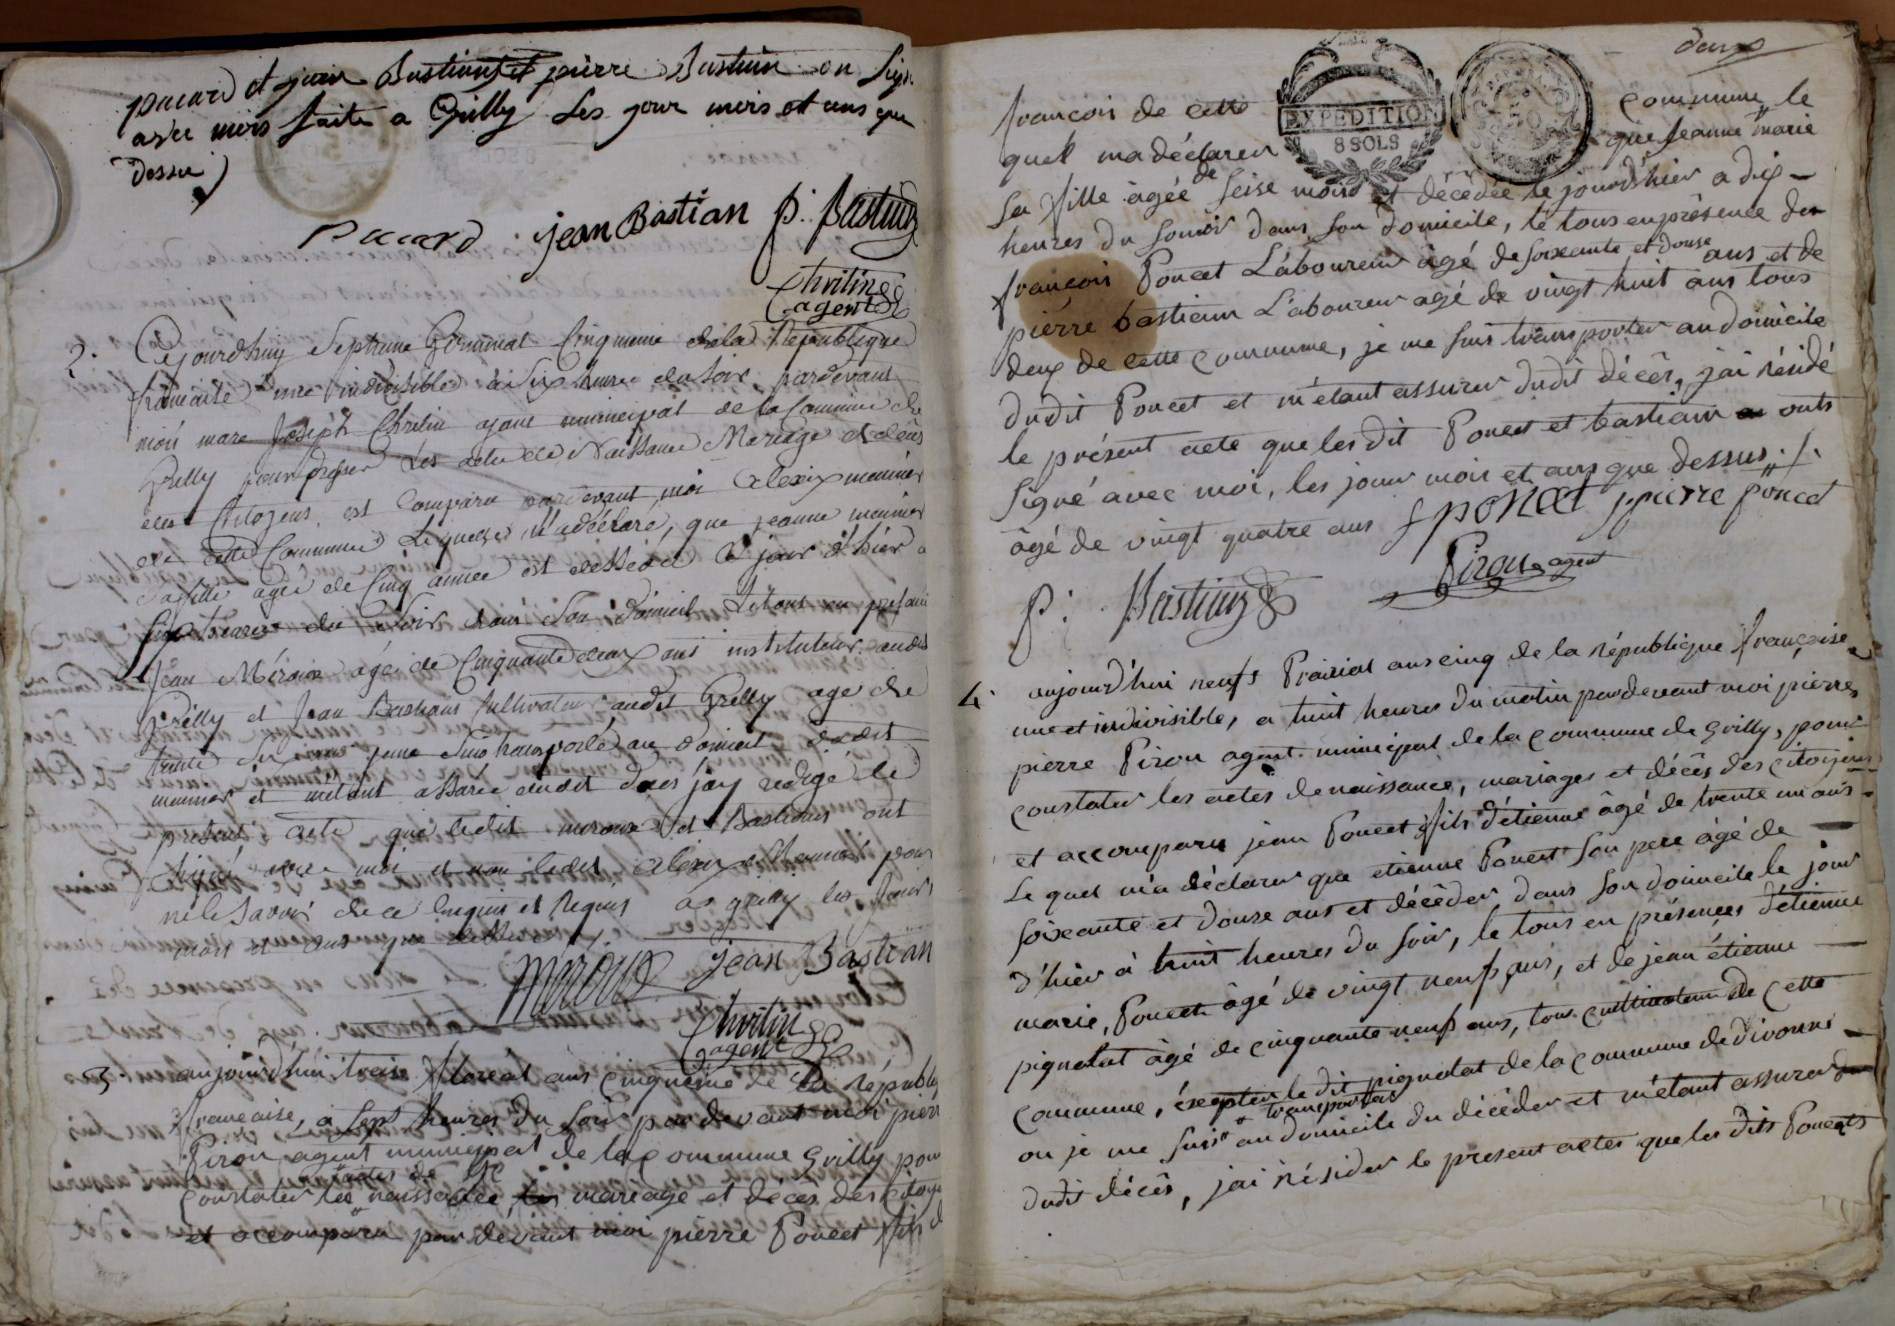 pacard et jean Bastians et pierre Bastian on sign
avec mois faite a Grilly Les jour mois et ans que
Dessu
Pacard jean Bastian P. Bastian
Chrilin
agent
2. Cejourdhuy Septieme Germinal Cinquieme de la République
francaise une indivisible a Six heures du soir, pardevant
moi marc Joseph Chrilin agent municipal de la Commune de
Grilly pour dresser Les actes de Naissance Mariage et décès
des Citoyens, est Comparu pardevant moi alexix meunier
de cette Commune Lequel m'a déclaré, que jeanne meunier
sa fille agée de Cinq année est déssédé le jour d'hier a
Six heures du soir dans son domicil Le tout en présence
Jean Méroux agé de Cinquante deux ans instituteur audit
Grilly et Jean Bastians Cultivateur audit Grilly age de
trente Six ans jeme Suis transporté au domicil dudit
meunier et métant assurée dudit décès j'ay redigé le
présent acte que ledit meroux et Bastians ont
Signé avec moi et non ledit alexix Meunier pour
ne le Savoir de ce enquis et Requis a grilly les jours
mois et ans que dessus
meroux jean Bastian
Chrilin
agent
3. aujourd'hui treise floréal ans cinquième de la républiq
française, a sept heures du soir par devant moi pierr
Piron agent municipal de la commune Grilly pour
actes de
constater les naissances, les mariage et décès des citoye
et accomparu par devant moi pierre Poncet fils d
deux
françois de cette commune le
EXPEDITION
8 SOLS
quel ma déclarer que Jeanne marie
sa fille âgée de seise mois et décèdée le jourd'hier a dix-
heures du soir dans son domicile, le tous enprésence de
françois Poncet Laboureur âgé de soixante et douse ans et de
pierre bastian Laboureur agé de vingt huit ans tous
deux de cette commune, je me suis transporter audomicile
dudit Poncet et m'étant assurer dudit décès, jai résidé
le présent acte que les dit Poncet et bastian onts
signé avec moi, les jour mois et ans que dessus ./.
âgé de vingt quatre ans f poncet ppierre poncet
P: Bastian Piron agent
4. aujourd'hui neufs Prairial ans cinq de la république française
une et indivisible, a huit heures du matin pardevant moi pierre
pierre Piron agent municipal de la commune de Grilly, pour
constater les actes de naissance, mariages et décès des citoyens
et accomparu jean Poncet fils d'étienne âgé de trente un ans
Le quel m'a déclarer que etienne Poncet son pere âgé de
soixante et douse ans et décéder dans son domicile le jour
d'hier à huit heures du soir, le tous en présences d'étienne
marie, Poncet âgé de vingt neufs ans, et de jean étienne
pignolat âgé de cinquante neufs ans, tous cultivateur de cette
commune, éxepter le dit pignolat de la commune de divonne
transporter
ou je me suis au domicile du décéder et m'étant assurer
dudit décès, jai résider le present actes que les dits Poncets